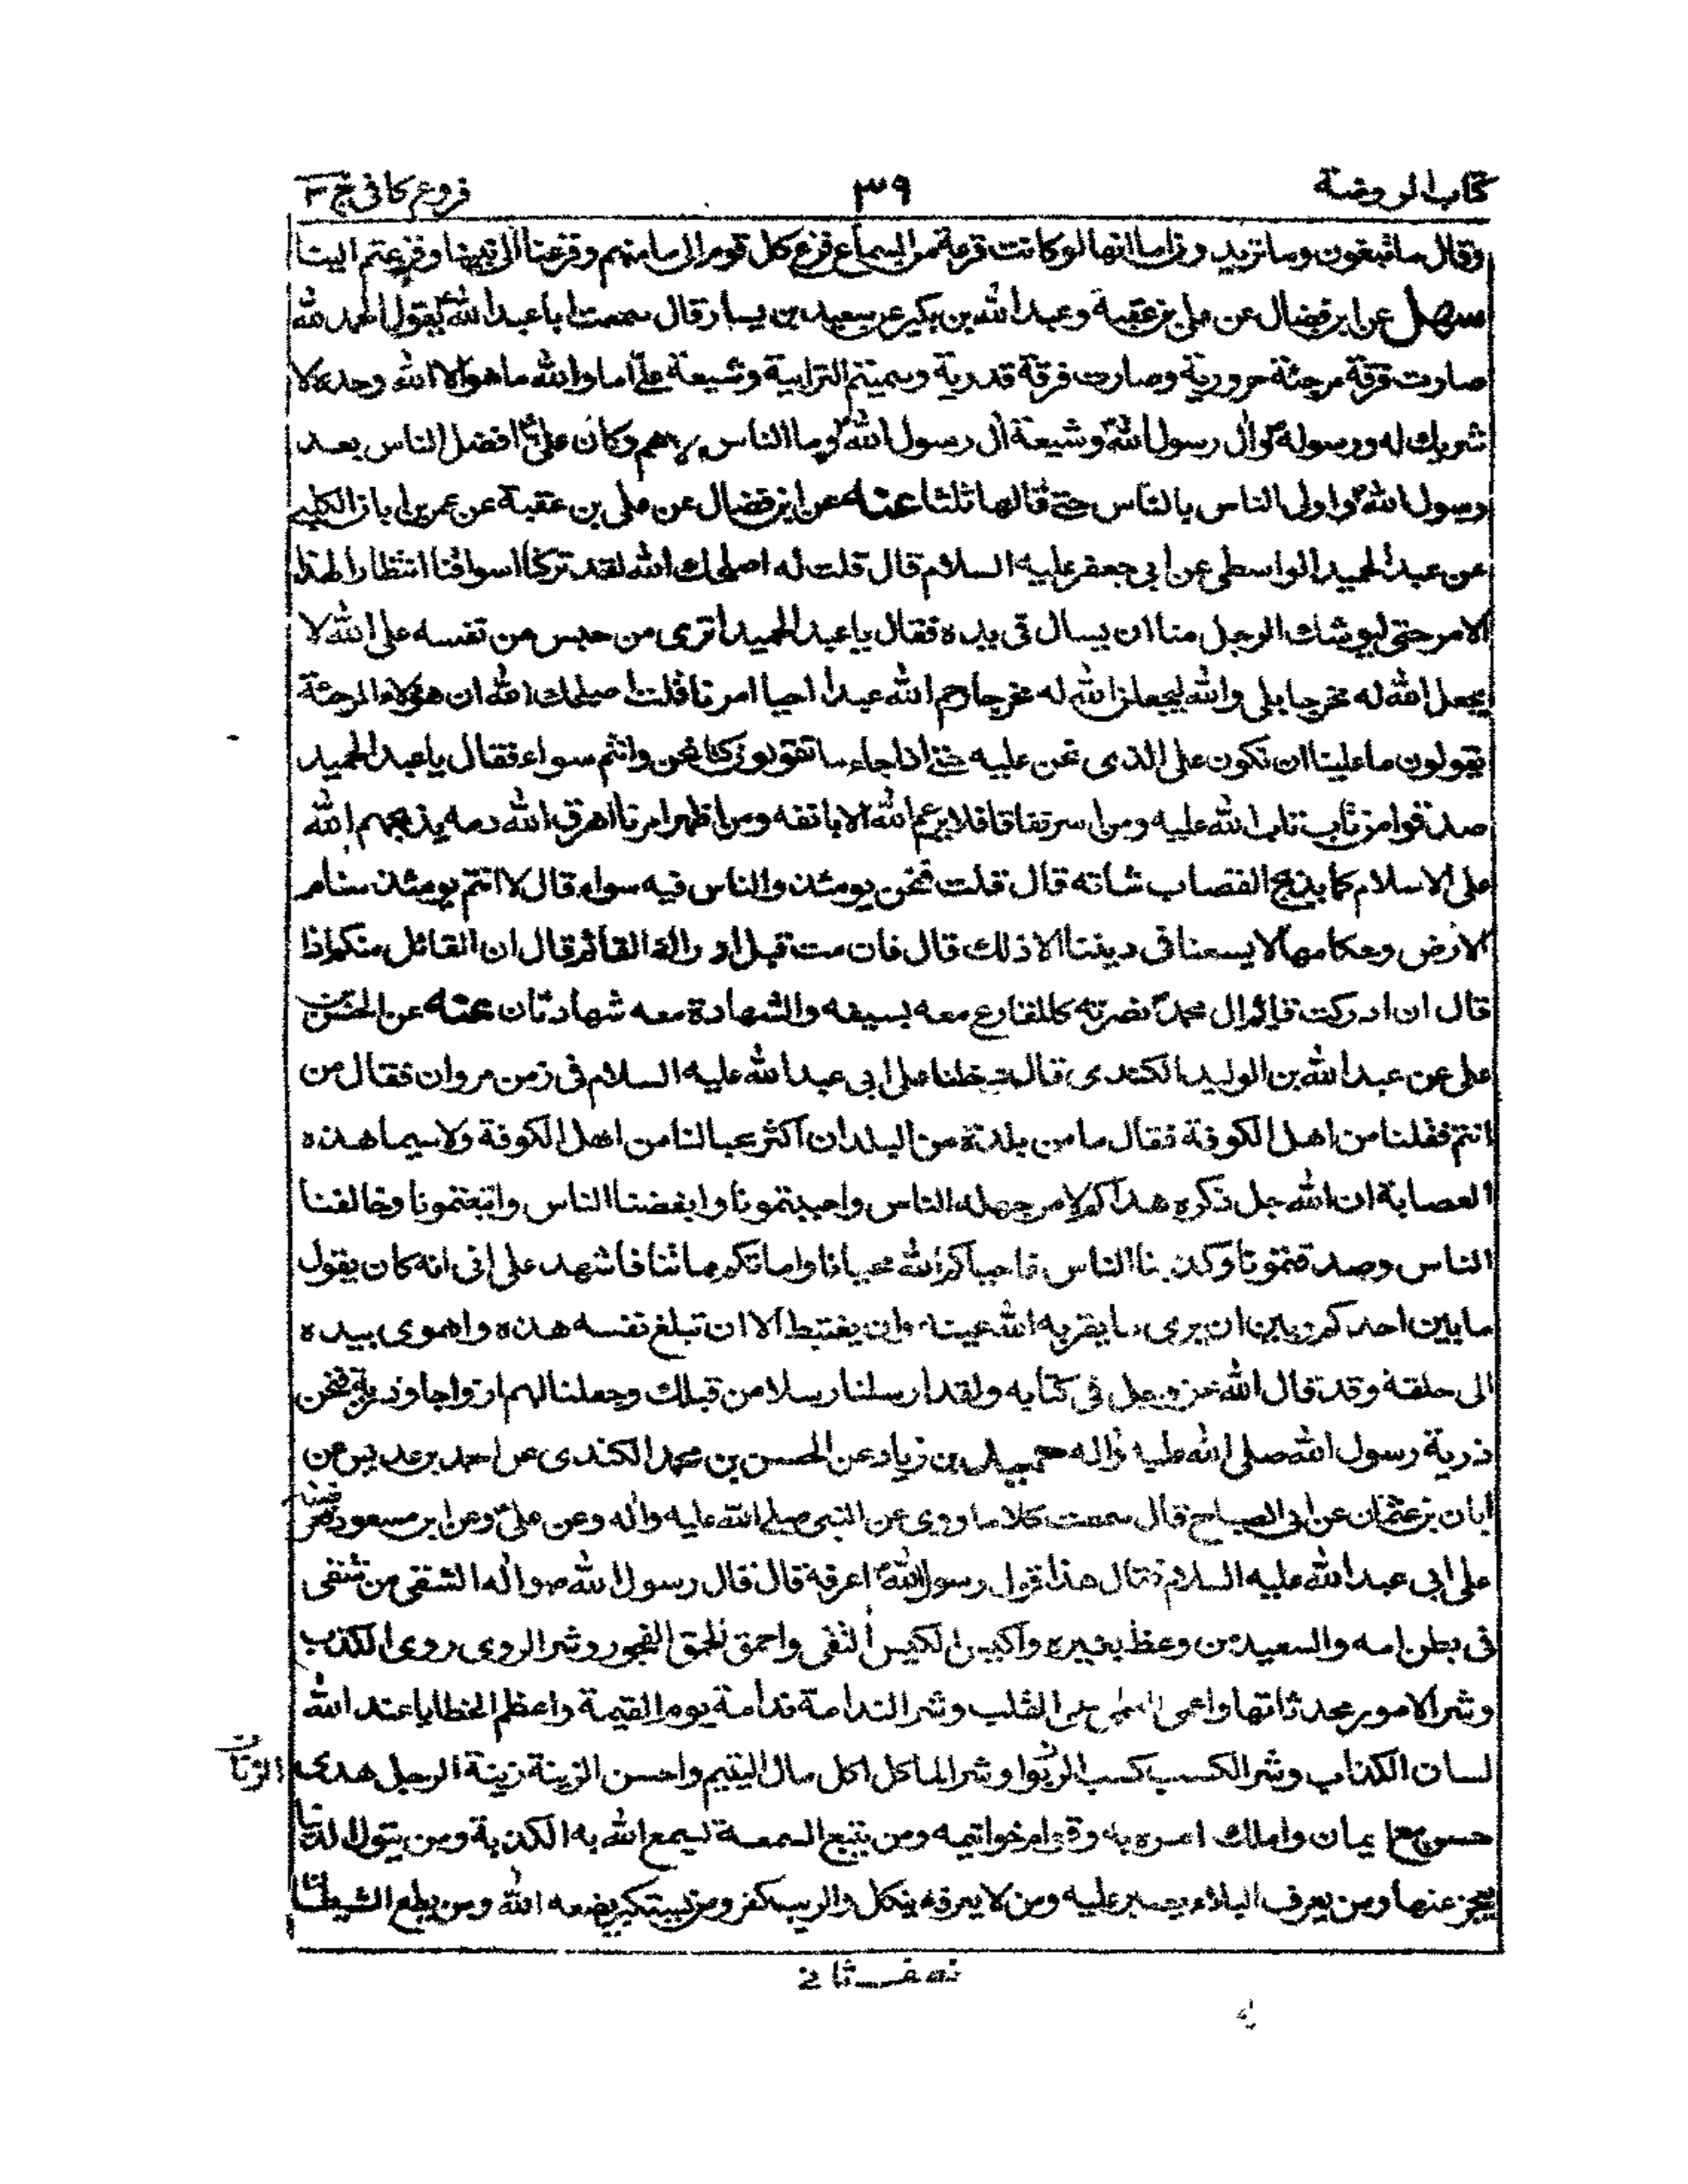 كتاب الروضة ٣٩ فروع كافى ج ٣
وقال ما تبغون وما تريدون اما انها لو كانت فزعة من السماء فزع كل قوم الى مامنهم وفزعنا الى نبينا وفزعتم الينا
سهل عن ابن فضال عن على بن عقبة وعبد الله بن بكير عن سعيد بن يسار قال سمعت ابا عبد الله يقول الحمد لله
صارت فرقة مرجئة حرورية وصارت فرقة قدرية وسميتم الترابية وشيعة على اما والله ما هو الا الله وحده لا
شريك له ورسوله وال رسول الله وشيعة ال رسول الله وما الناس الا هم وكان على افضل الناس بعد
رسول الله واولى الناس بالناس حتى قالها ثلثا عنه عن ابن فضال عن على بن عقبة عن عمر بن ابان الكلبى
عن عبد الحميد الواسطى عن ابى جعفر عليه السلام قال قلت له اصلحك الله لقد تركنا اسواقنا انتظارا لهذا
الامر حتى ليوشك الرجل منا ان يسال فى يده فقال يا عبد الحميد اترى من حبس من نفسه على الله لا
يجعل الله له مخرجا بلى والله ليجعلن الله له مخرجا رحم الله عبدا احيا امرنا قلت اصلحك الله ان هؤلاء المرجئة
يقولون ما علينا ان نكون على الذى نحن عليه حتى اذا جاء ما تقولون كنا نحن وانتم سواء فقال يا عبد الحميد
صدقوا من تاب تاب الله عليه ومن اسر نفاقا فلا يرغم الله الا بانفه ومن اظهر امرنا اهرق الله دمه يذبحهم الله
على الاسلام كما يذبح القصاب شاته قال قلت فنحن يومئذ والناس فيه سواء قال لا انتم يومئذ سنام
الارض وحكامها لا يسعنا فى ديننا الا ذلك قال فان مت قبل ادراك القائم قال ان القائل منكم اذا
قال ان ادركت قائم ال محمد نصرته كالمقارع معه بسيفه والشهادة معه شهادتان عنه عن الحسن بن
على عن عبد الله بن الوليد الكندى قال دخلنا على ابى عبد الله عليه السلام فى زمن مروان فقال من
انتم فقلنا من اهل الكوفة فقال ما من بلدة من البلدان اكثر محبا لنا من اهل الكوفة ولا سيما هذه
العصابة ان الله جل ذكره هداكم لامر جهله الناس واحببتمونا وابغضنا الناس واتبعتمونا وخالفنا
الناس وصدقتمونا وكذبنا الناس فاحياكم الله محيانا واماتكم مماتنا فاشهد على ابى انه كان يقول
ما بين احدكم وبين ان يرى ما يقر به الله عينه وان يغتبط الا ان تبلغ نفسه هذه واهوى بيده
الى حلقه وقد قال الله عز وجل فى كتابه ولقد ارسلنا رسلا من قبلك وجعلنا لهم ازواجا وذرية فنحن
ذرية رسول الله صلى الله عليه واله حميد بن زياد عن الحسن بن محمد الكندى عن احمد بن عديس عن
ابان بن عثمان عن ابى الصباح قال سمعت كلاما روى عن النبى صلى الله عليه واله وعن على وعن ابن مسعود فعرضته
على ابى عبد الله عليه السلام فقال هذا قول رسول الله اعرفه قال قال رسول الله ص واله الشقى من شقى
فى بطن امه والسعيد من وعظ بغيره واكيس الكيس التقى واحمق الحمق الفجور وشر الروى روى الكذب
وشر الامور محدثاتها واعمى العمى عمى القلب وشر الندامة ندامة يوم القيمة واعظم الخطايا عند الله
لسان الكذاب وشر الكسب كسب الربوا وشر الماكل اكل مال اليتيم واحسن الزينة زينة الرجل هدى
حسن مع ايمان واملك امره به وقوام خواتيمه ومن يتبع السمعة يسمع الله به الكذبة ومن يتول الدنيا
يعجز عنها ومن يعرف البلاء يصبر عليه ومن لا يعرفه ينكل والريب كفر ومن يستكبر يضعه الله ومن يطع الشيطان